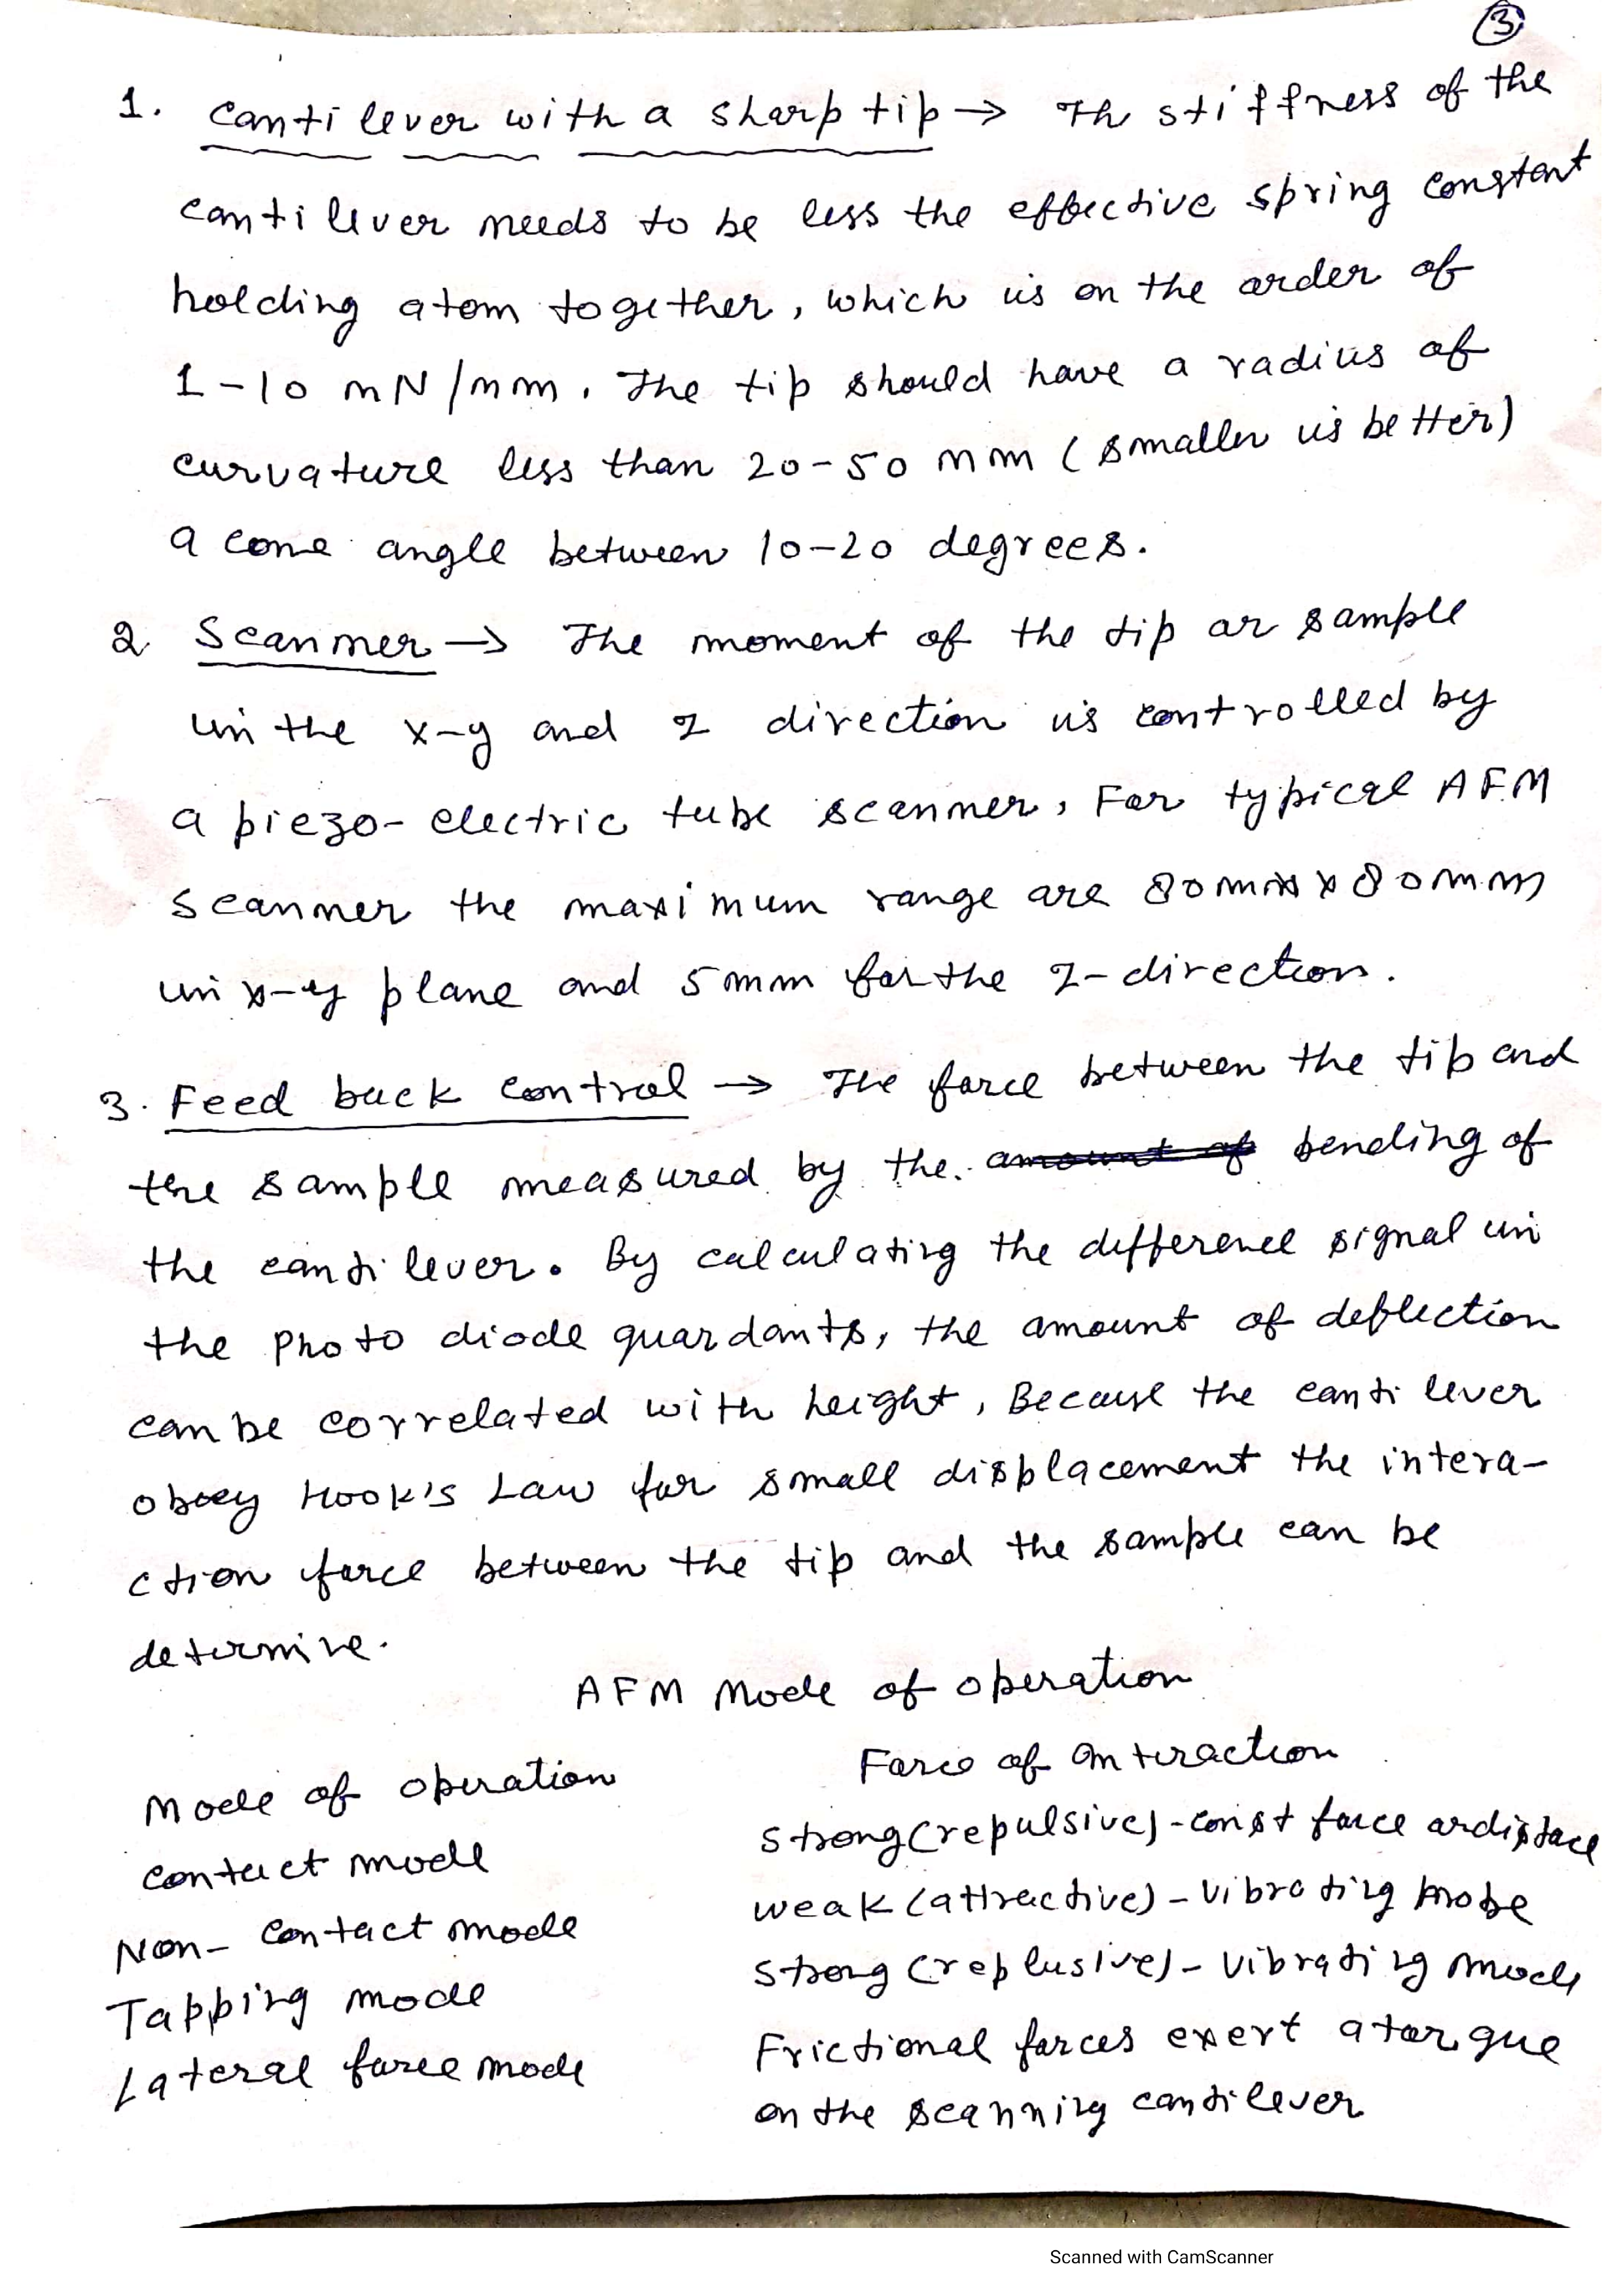 3
1. Cantilever with a sharp tip → Th stiffness of the
cantilever needs to be less the effective spring constant
holding atom together, which is on the order of
1-10 nN/nm. The tip should have a radius of
curvature less than 20-50 nm (smaller is better)
a cone angle between 10-20 degrees.
2. Scanner → The moment of the tip or sample
in the x-y and z direction is controlled by
a piezo-electric tube scanner, For typical AFM
scanner the maximum range are 80 mm x 80 mm
in x-y plane and 5mm for the z-direction.
3. Feed back control → The force between the tip and
the sample measured by the amount of bending of
the cantilever. By calculating the difference signal in
the photo diode quardants, the amount of deflection
can be correlated with height, Because the cantilever
obey Hook's Law for small displacement the intera-
ction force between the tip and the sample can be
determine.
AFM Mode of operation
Mode of operation
Force of Interaction
contact mode
strong (repulsive) - const force or distace
Non-contact mode
weak (attractive) - vibrating probe
Tapping mode
strong (replusive) - vibrating mode
Lateral force mode
Frictional forces exert a torque
on the scanning cantilever
Scanned with CamScanner